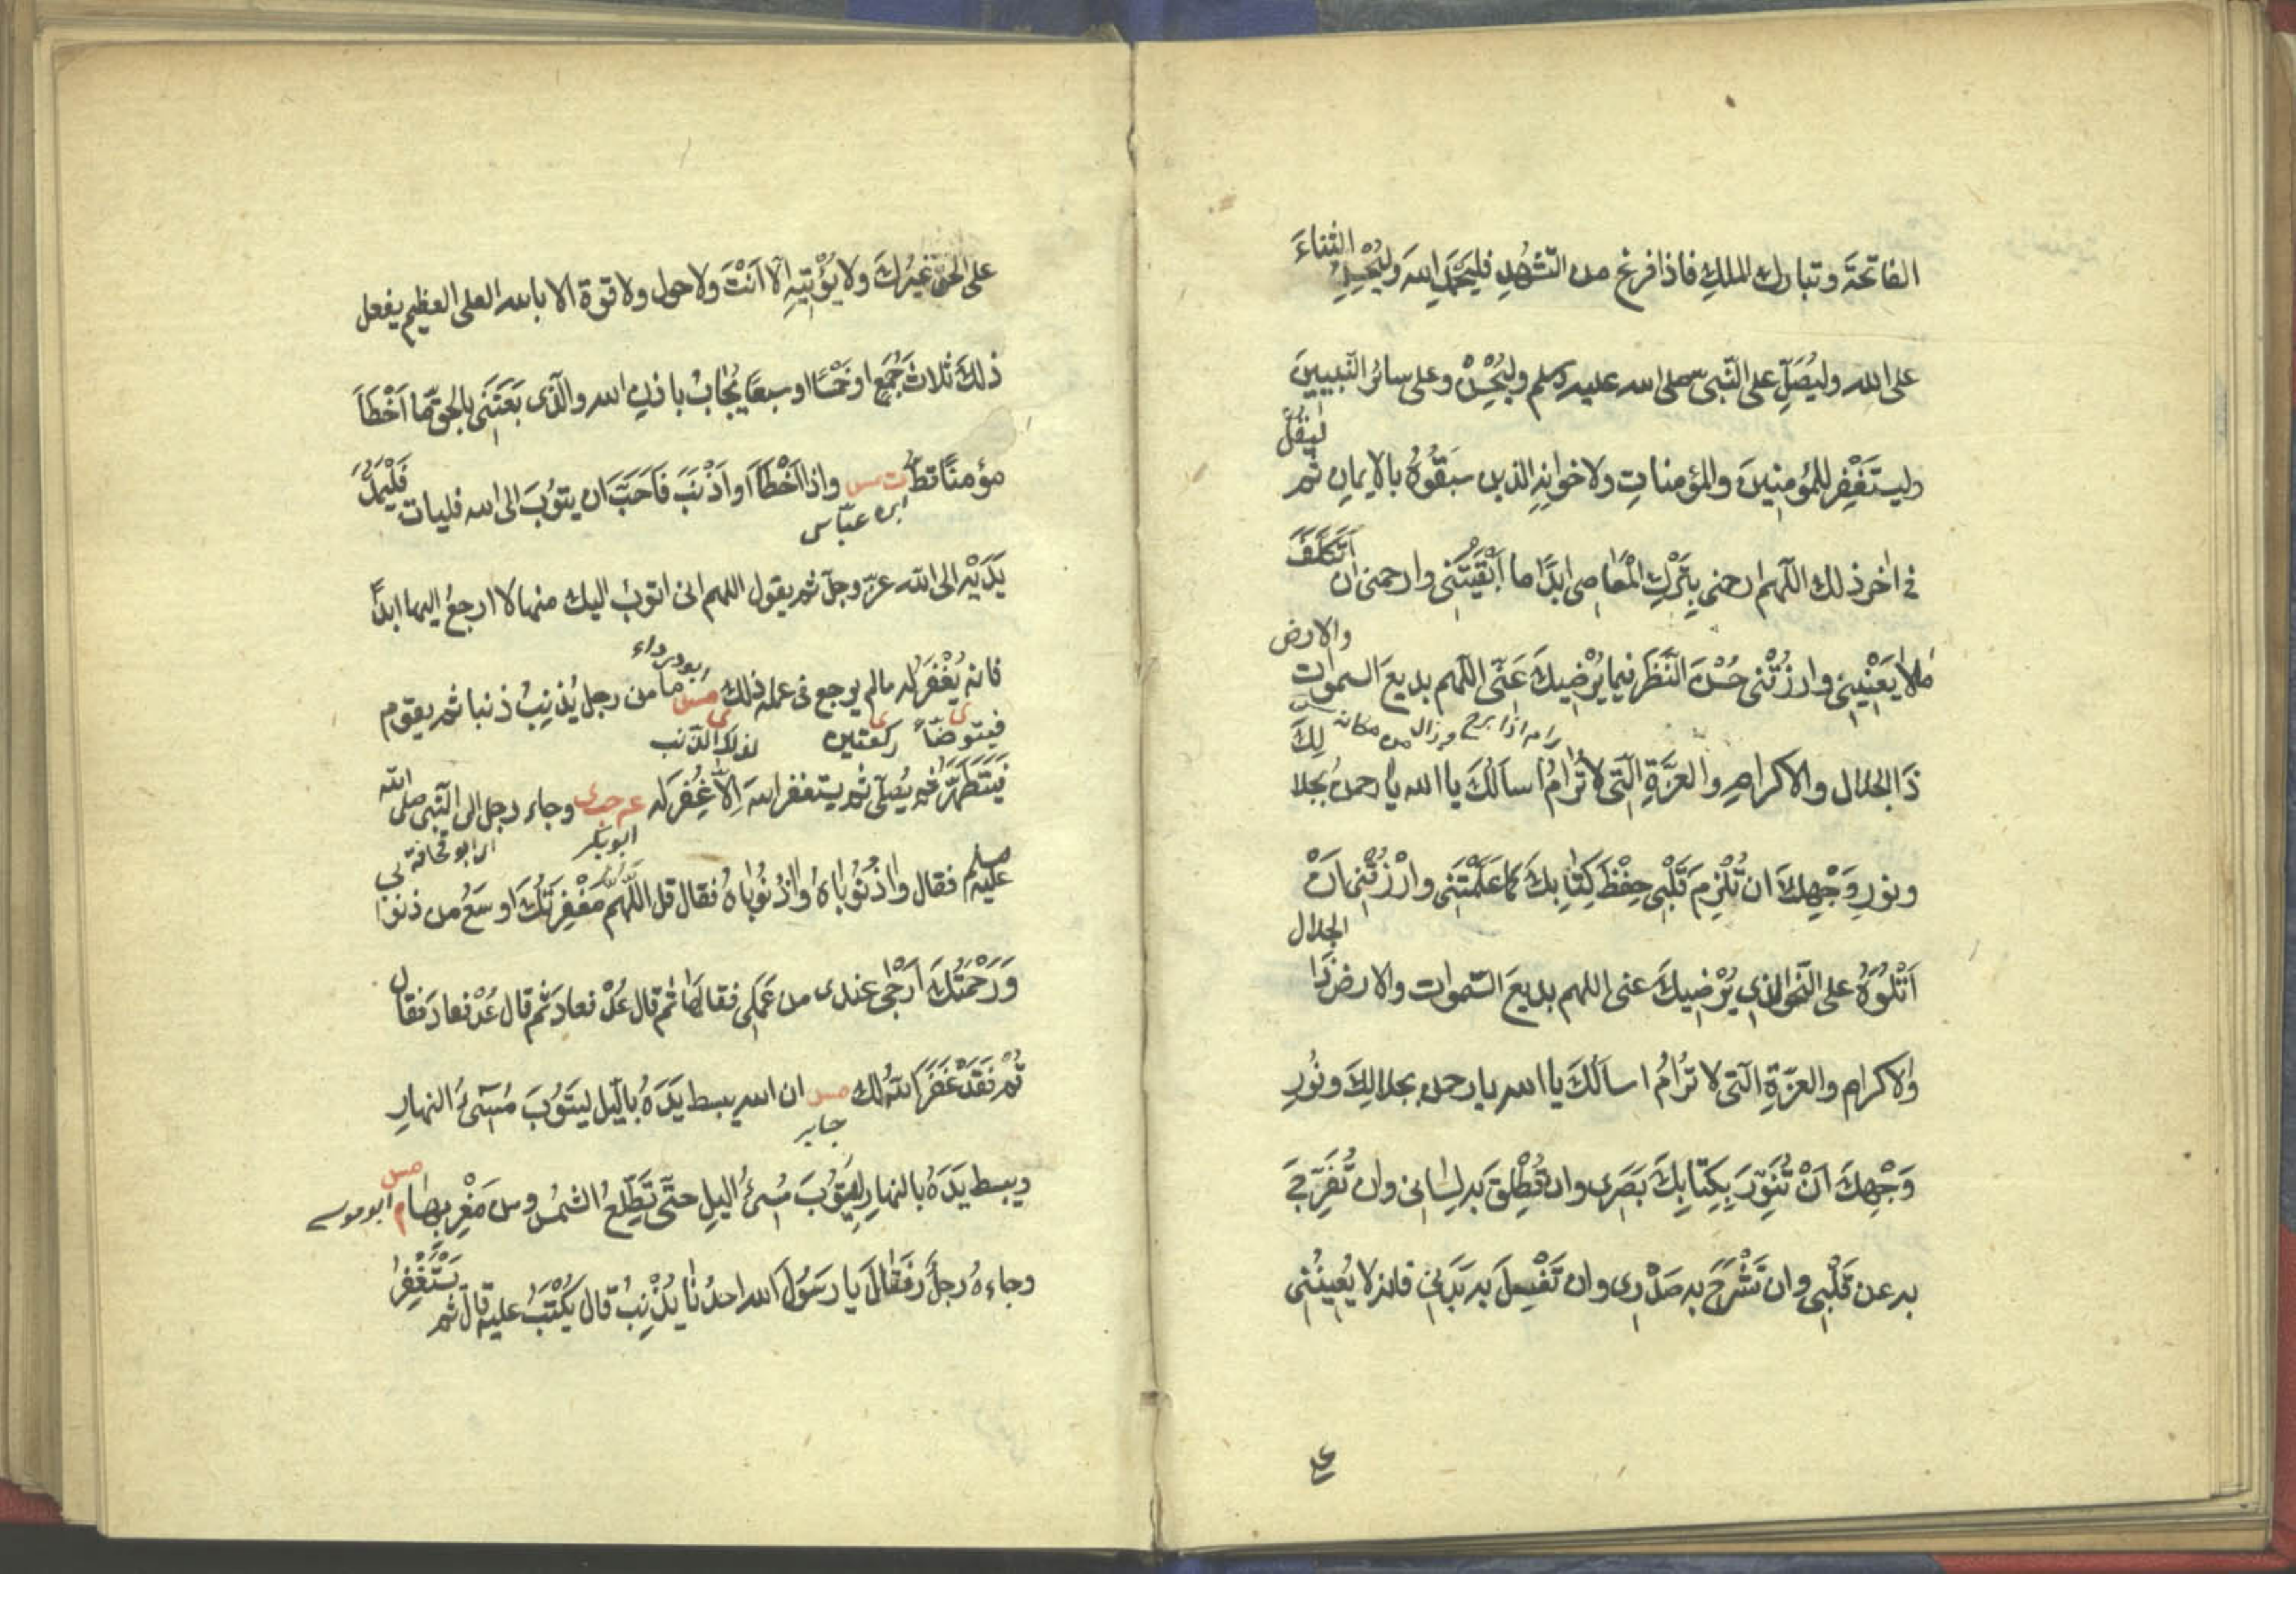 الفاتحةَ وتبارك الملكِ فاذا فرغ من التشهُّدِ فليَحْمَدِ اللهَ وليُحْسِنِ الثناءَ
على الله وليُصَلِّ على النّبى صلى الله عليه وسلم وليُحْسِنْ وعلى سائرِ النّبيينَ
وليستَغْفِر للمُؤمنِينَ والمؤمناتِ ولاخوانِهِ الذين سَبَقُوهُ بالايمانِ ثم ليَقُلْ
فى اخر ذلك اللّهم ارحمنى بِتَرْكِ المَعَاصِى ابدًا ما اَبْقَيْتَنِى وارحمنى ان اَتَكَلَّفَ
مَالاَ يَعْنِيْنِى وارزُقْنى حُسْنَ النَّظَرِ فيما يُرْضِيكَ عَنِّى اللّهم بديعَ السموات والارض
رام اذا برح وزال من مكانه
ذَا الجلال والاكرامِ والعِزَّةِ الّتى لا تُرَامُ اسألكَ يا الله يا رحمنُ بجلالِكَ
ونورِ وَجْهِكَ ان تُلْزِمَ قَلْبِى حِفْظَ كِتَابِكَ كما عَلَّمْتَنِى وارْزُقْنِى اَنْ
اَتْلُوَهُ على النّحوِ الذى يُرْضِيكَ عنى اللهم بديعَ السّموات والارض ذَا الجلال
والاكرام والعزّةِ الّتى لا تُرَامُ اسألكَ يا الله يا رحمن بجلالِكَ ونُورِ
وَجْهِكَ اَنْ تُنَوِّرَ بِكِتَابِكَ بَصَرِى وان تُطْلِقَ به لِسَانى وان تُفَرِّجَ
به عن قَلْبِى وان تَشْرَحَ به صَدْرِى وان تَغْسِلَ به بَدَنِى فانه لا يُعِينُنِى
على الحقّ غيرُكَ ولا يُؤْتِيْهِ اِلّا اَنْتَ ولا حول ولا قوة الا بالله العلى العظيم يفعل
ذلكَ ثلاثَ جُمَعٍ او خَمْسًا او سبعًا يُجَابُ باذنِ الله والّذى بَعَثَنِى بالحقّ ما اَخْطَأَ
مؤمنًا قطُّ ت مس واذا اَخْطَأَ او اَذْنَبَ فَاَحَبَّ ان يتوُبَ الى الله فليات فَلْيَمُدَّ
ابن عبّاس
يَدَيْهِ الى الله عزّ وجلّ ثم يقول اللهم انى اتوبُ اليك منها لا ارجعُ اليها ابدًا
ابو درداء
فانه يُغْفَرُ له مالم يرجع فى عمله ذلك مس ما من رجل يُذنِبُ ذنبا ثم يقوم
فيتوضّأ ى ركعتين ى لذلك الذنب ى
فَيَتَطَهَّرُ ثم يُصلّى ثم يستغفر اللهَ اِلّا غُفِرَ له عه حب ى وجاء رجل الى النّبى صلى الله
ابو بكر ابن ابو قحافة
عليه وسلم فقال واذُنُوبَاهُ واذُنُوبَاهُ فقال قل اللّهم مَغْفِرَتُكَ اوسَعُ من ذنوبى
وَرَحْمَتُكَ اَرْجَى عندى من عَمَلِى فقالهَا ثم قال عُدْ فعادَ ثم قال عُدْ فعادَ فقال
قُمْ فَقَدْ غَفَرَ اللهُ لك مس ان الله يبسط يَدَهُ بالّيل ليَتُوبَ مُسِىءُ النهارِ
جابر
ويبسط يَدَهُ بالنهارِ لِيَتُوبَ مُسِىءُ اليلِ حتّى تَطْلُعَ الشمس من مَغْرِبِهَا م مس ابو موسى
وجاءهُ رجلٌ فَقَالَ يا رسولَ الله احدُنَا يُذْنِبُ قال يُكْتَبُ عليه قال ثم يَسْتَغْفِرُ